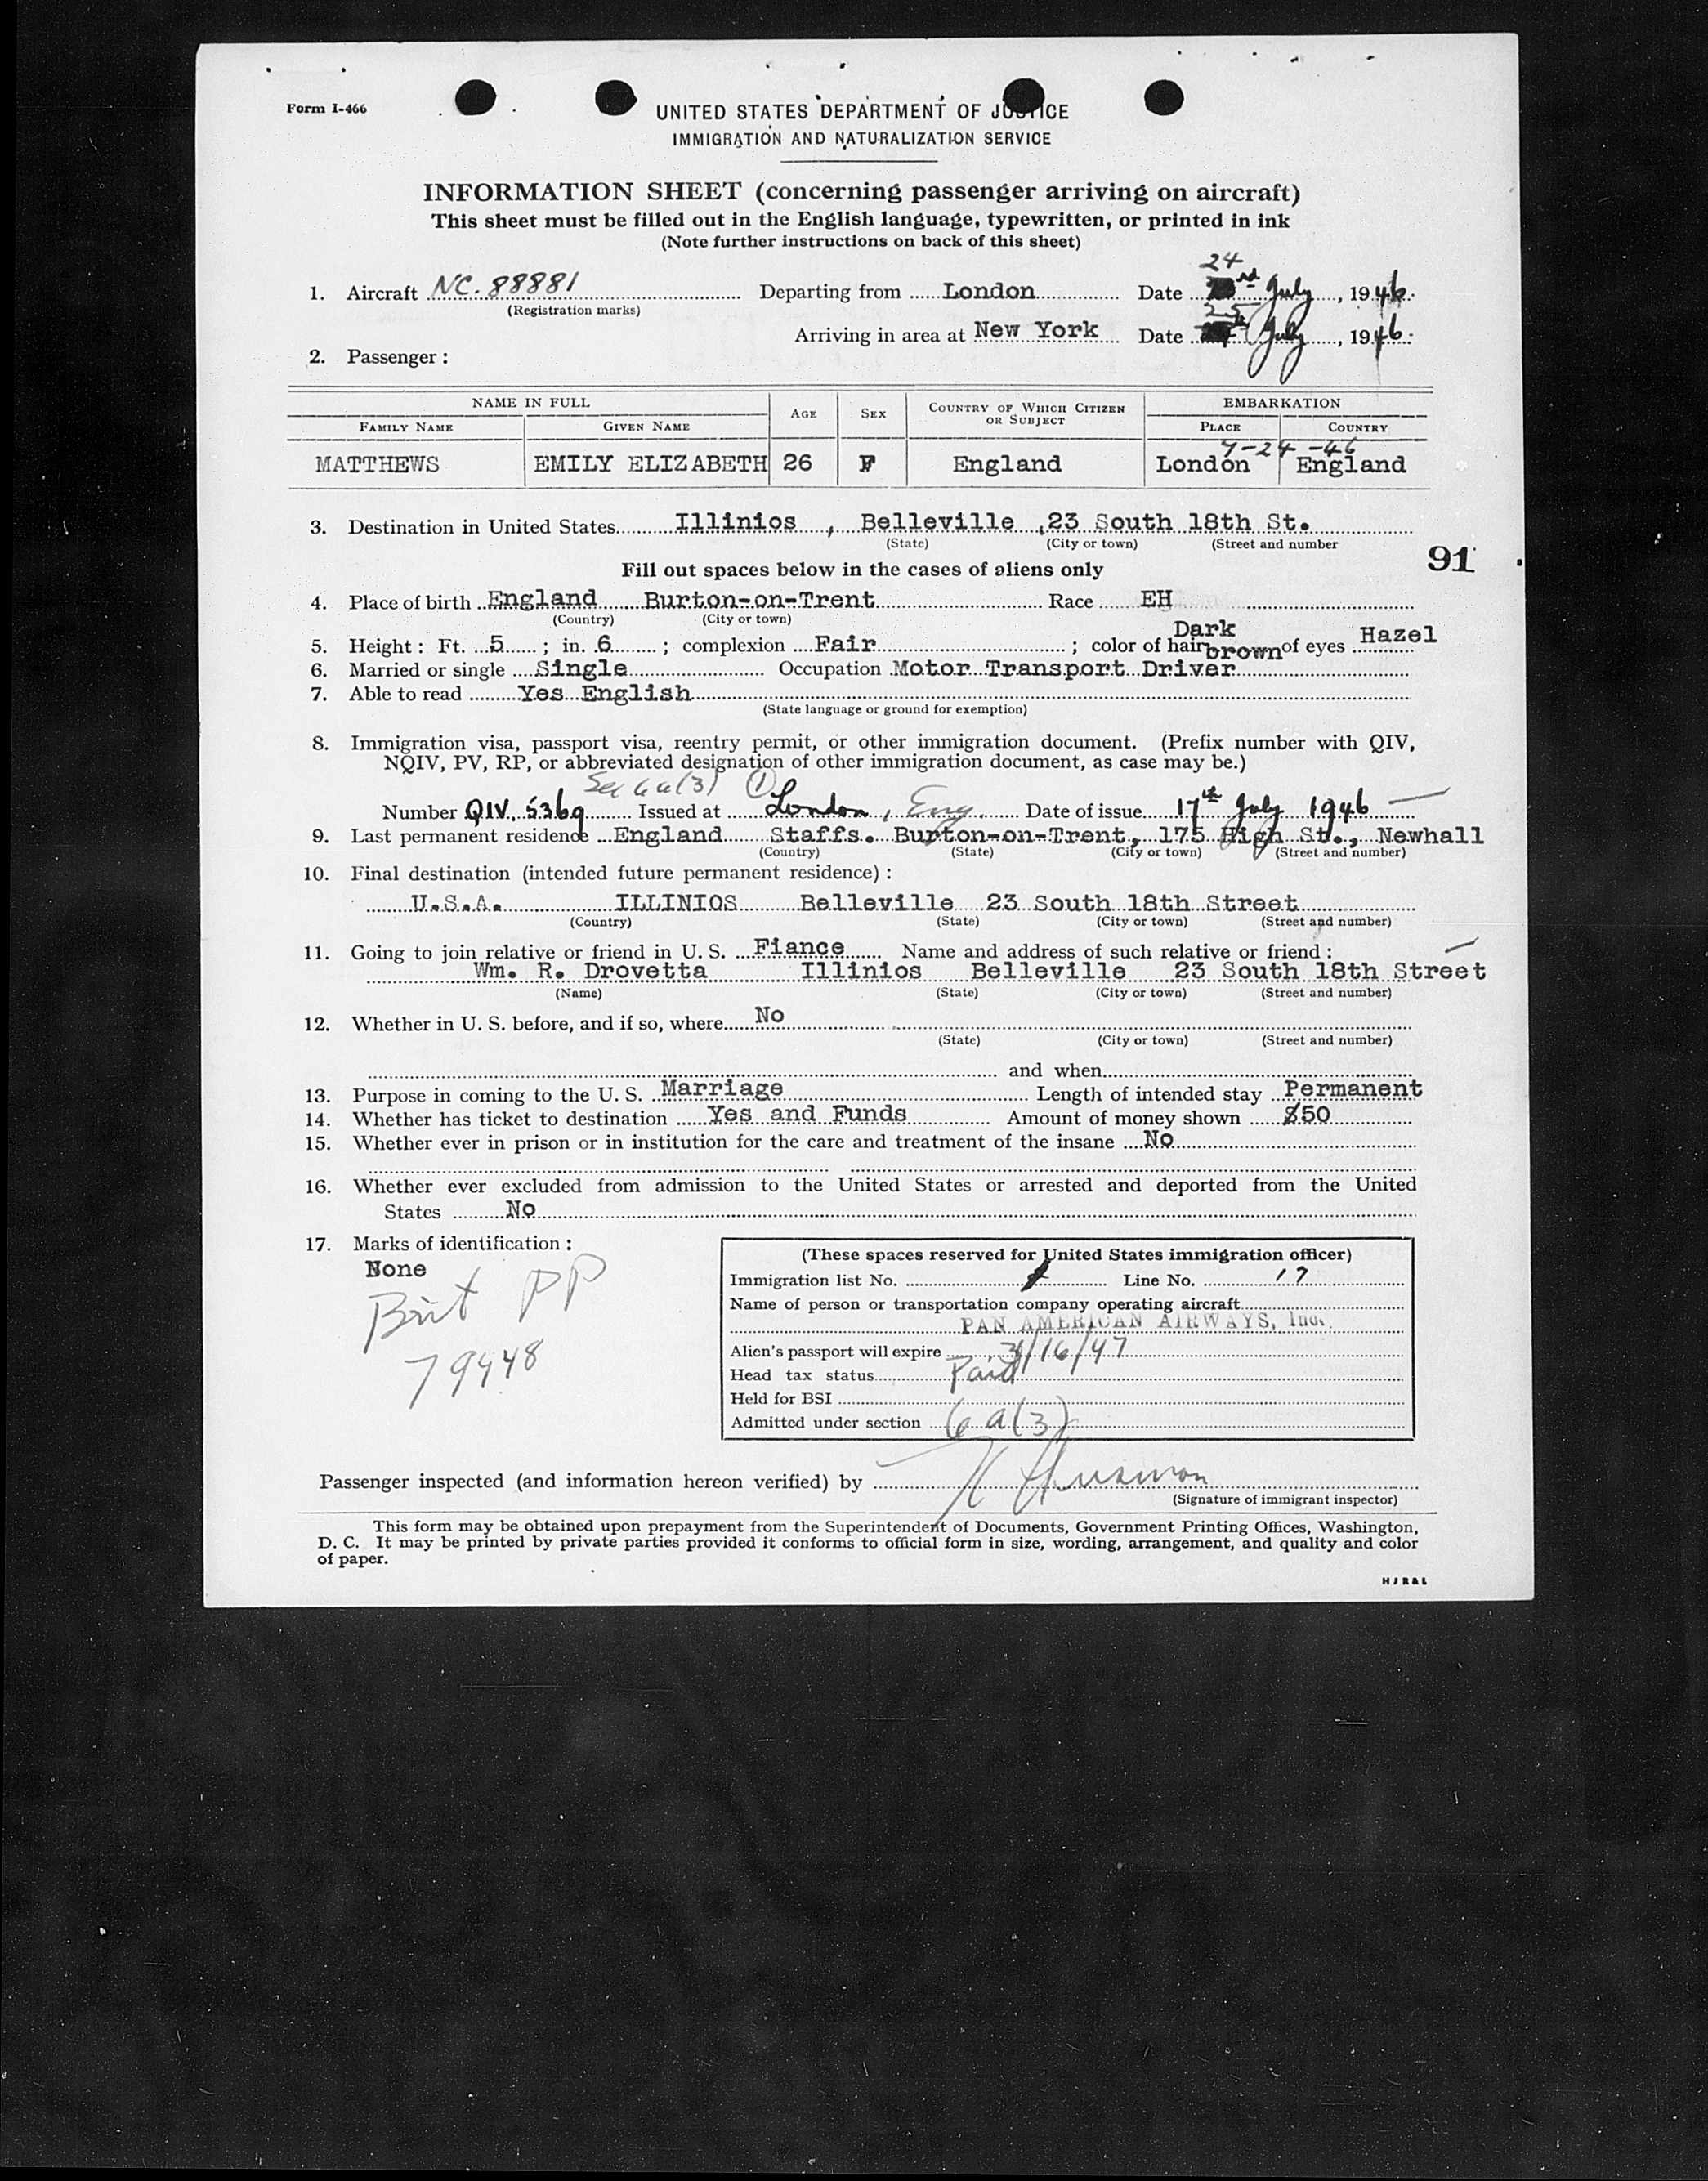 Form I-466
UNITED STATES DEPARTMENT OF JUSTICE
IMMIGRATION AND NATURALIZATION SERVICE
INFORMATION SHEET (concerning passenger arriving on aircraft)
This sheet must be filled out in the English language, typewritten, or printed in ink
(Note further instructions on back of this sheet)
24
1. Aircraft NC.88881 Departing from London Date July, 1946.
(Registration marks)
25
Arriving in area at New York Date July, 1946.
2. Passenger:
NAME IN FULL AGE SEX COUNTRY OF WHICH CITIZEN OR SUBJECT EMBARKATION
FAMILY NAME GIVEN NAME PLACE COUNTRY
7-24-46
MATTHEWS EMILY ELIZABETH 26 F England London England
3. Destination in United States Illinios, Belleville, 23 South 18th St.
(State) (City or town) (Street and number
91
Fill out spaces below in the cases of aliens only
4. Place of birth England Burton-on-Trent Race EH
(Country) (City or town)
5. Height: Ft. 5; in. 6; complexion Fair; color of hair Dark brown of eyes Hazel
6. Married or single Single Occupation Motor Transport Driver
7. Able to read Yes English
(State language or ground for exemption)
8. Immigration visa, passport visa, reentry permit, or other immigration document. (Prefix number with QIV,
NQIV, PV, RP, or abbreviated designation of other immigration document, as case may be.)
Sec 6a(3) 1
Number QIV. 5369 Issued at London, Eng. Date of issue 17th July 1946
9. Last permanent residence England Staffs. Burton-on-Trent, 175 High St., Newhall
(Country) (State) (City or town) (Street and number)
10. Final destination (intended future permanent residence):
U.S.A. ILLINIOS Belleville 23 South 18th Street
(Country) (State) (City or town) (Street and number)
11. Going to join relative or friend in U. S. Fiance Name and address of such relative or friend:
Wm. R. Drovetta Illinios Belleville 23 South 18th Street
(Name) (State) (City or town) (Street and number)
12. Whether in U. S. before, and if so, where No
(State) (City or town) (Street and number)
and when
13. Purpose in coming to the U. S. Marriage Length of intended stay Permanent
14. Whether has ticket to destination Yes and Funds Amount of money shown $50
15. Whether ever in prison or in institution for the care and treatment of the insane No
16. Whether ever excluded from admission to the United States or arrested and deported from the United
States No
17. Marks of identification:
None
Brit PP
79448
(These spaces reserved for United States immigration officer)
Immigration list No. Line No. 17
Name of person or transportation company operating aircraft
PAN AMERICAN AIRWAYS, Inc.
Alien's passport will expire /16/47
Head tax status Paid
Held for BSI
Admitted under section 6a(3)
Passenger inspected (and information hereon verified) by
(Signature of immigrant inspector)
This form may be obtained upon prepayment from the Superintendent of Documents, Government Printing Offices, Washington,
D. C. It may be printed by private parties provided it conforms to official form in size, wording, arrangement, and quality and color
of paper.
HJR&L